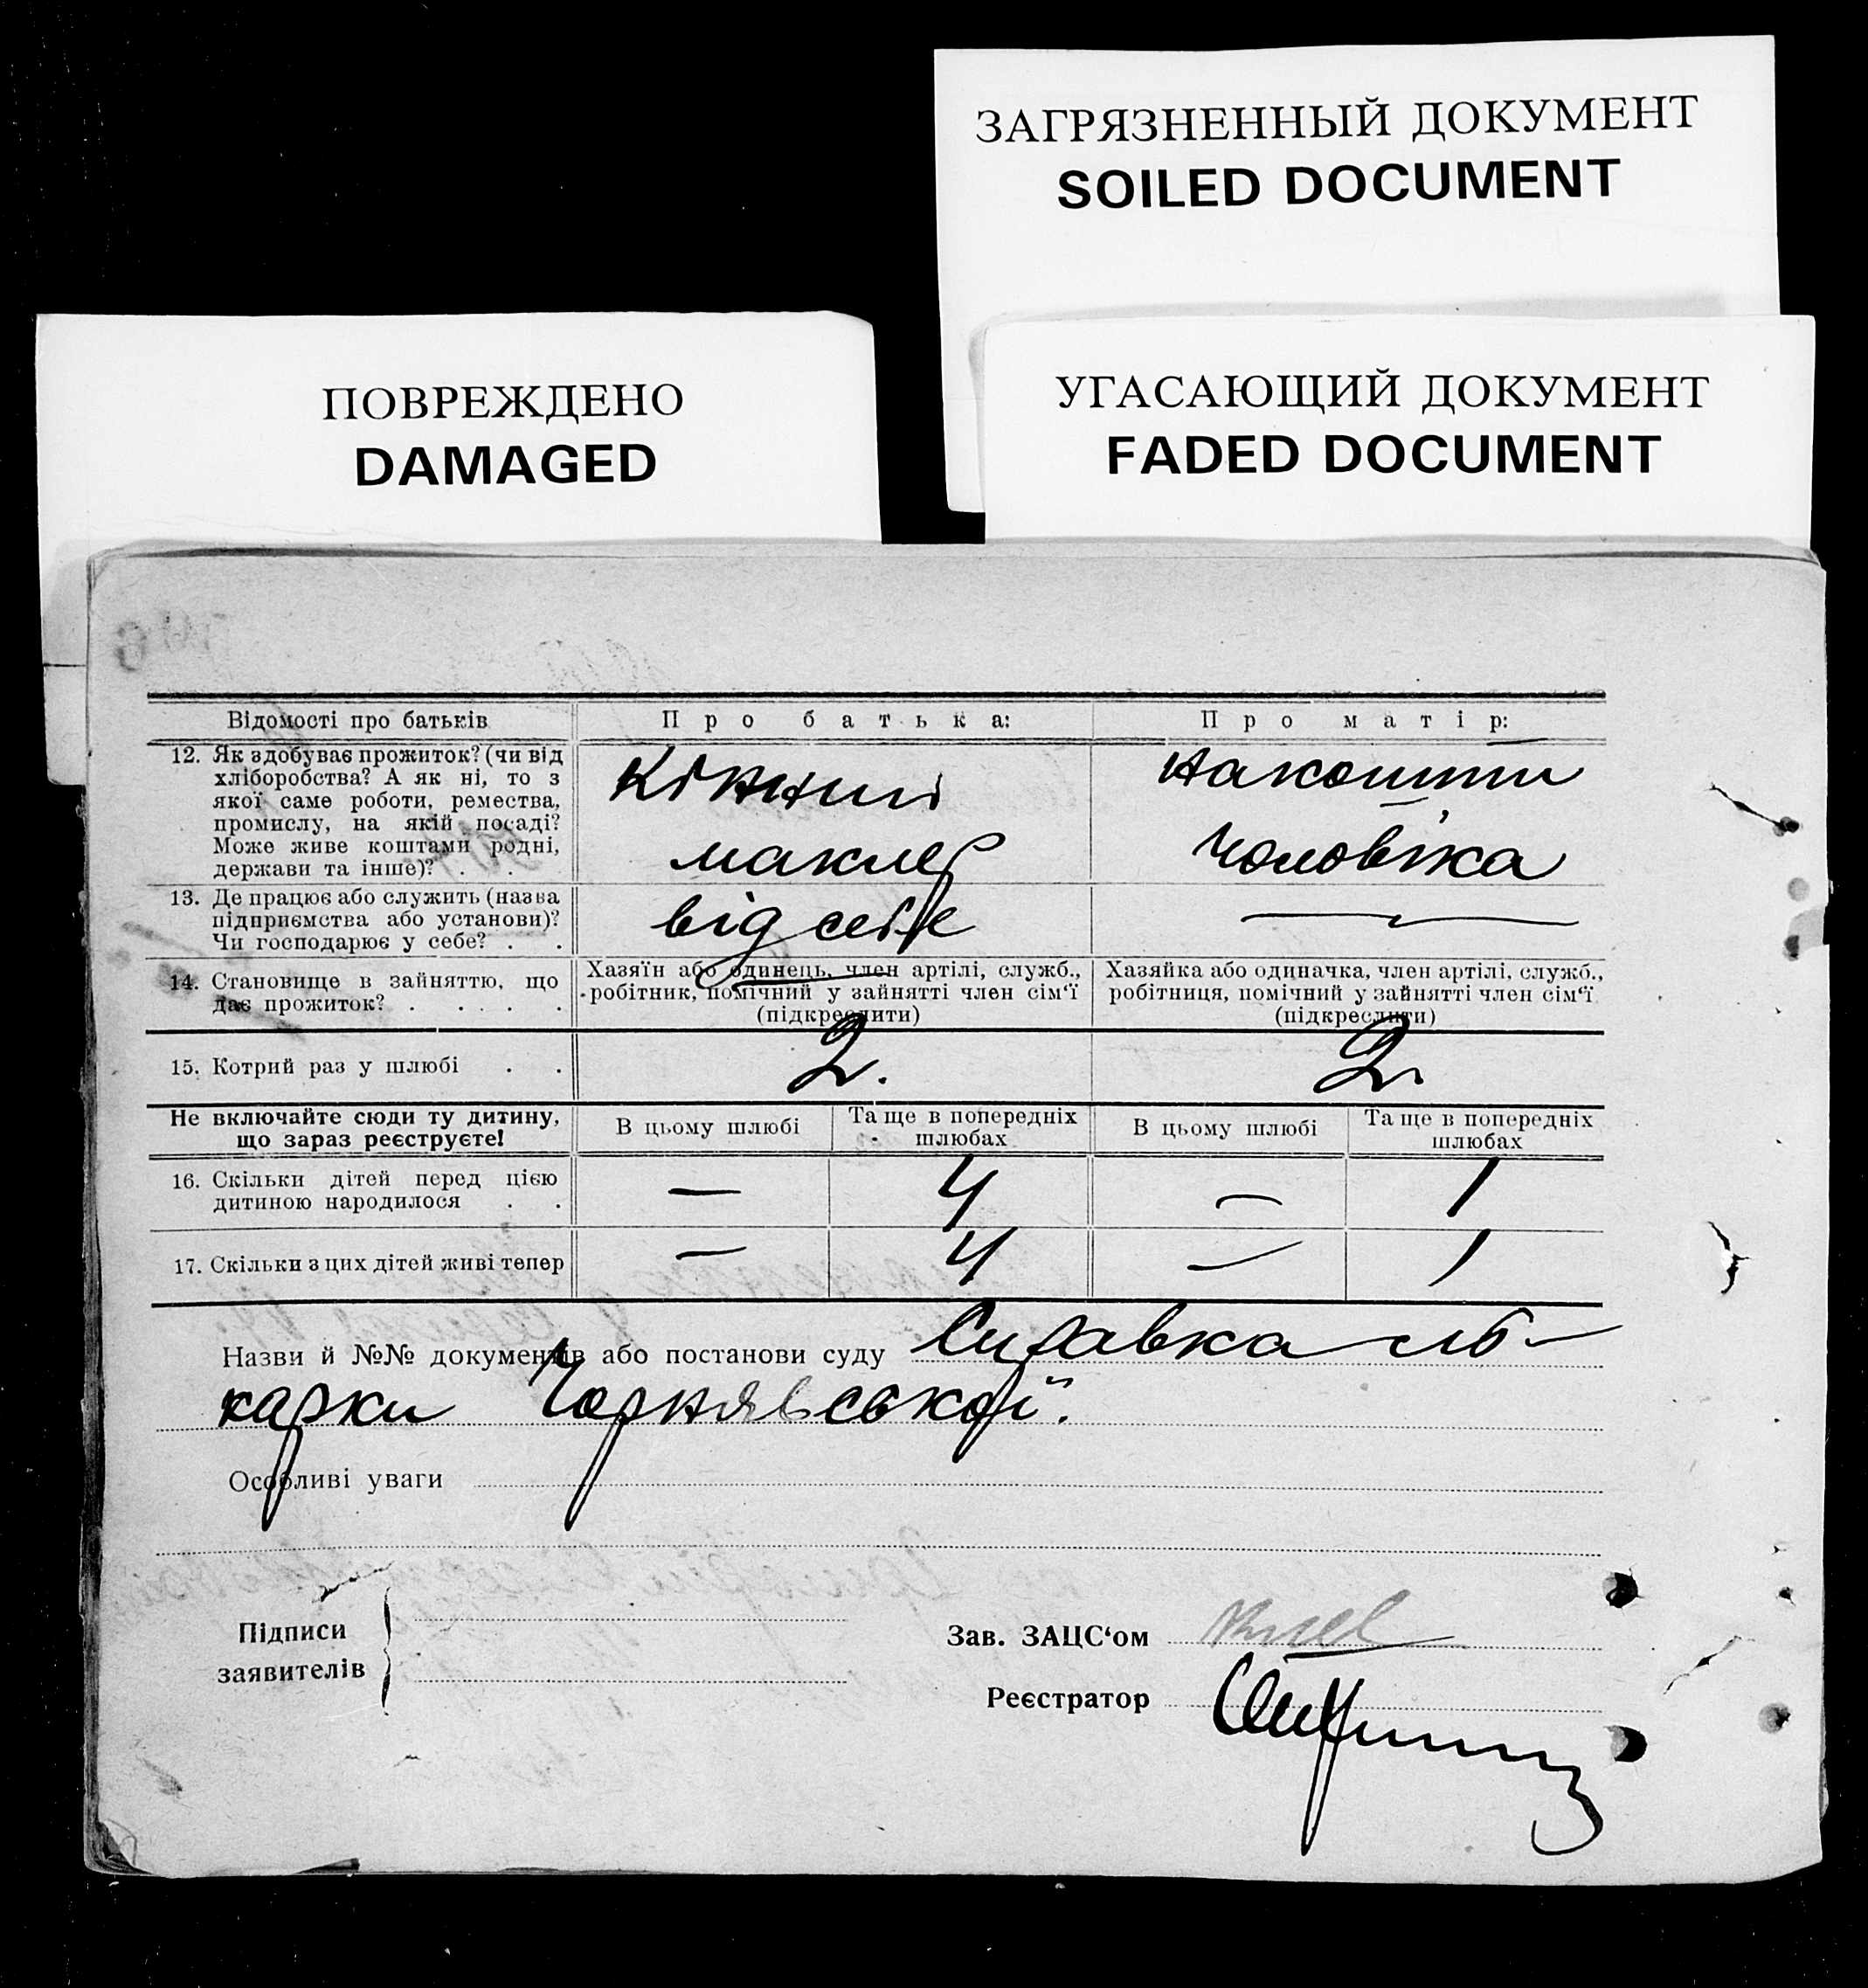 ЗАГРЯЗНЕННЫЙ ДОКУМЕНТ
SOILED DOCUMENT
ПОВРЕЖДЕНО
DAMAGED
УГАСАЮЩИЙ ДОКУМЕНТ
FADED DOCUMENT
Відомості про батьків
Про батька:
Про матір:
12. Як здобуває прожиток? (чи від
хліборобства? А як ні, то з
якої саме роботи, ремества,
промислу, на якій посаді?
Може живе коштами родні,
держави та інше)? . .
Кінний
маклер
на кошти
чоловіка
13. Де працює або служить (назва
підприємства або установи)?
Чи господарює у себе? . .
від себе
—
14. Становище в зайняттю, що
дає прожиток? . . . . .
Хазяїн або одинець, член артілі, служб.,
робітник, помічний у зайнятті член сім‘ї
(підкреслити)
Хазяйка або одиначка, член артілі, служб.,
робітниця, помічний у зайнятті член сім‘ї
(підкреслити)
15. Котрий раз у шлюбі . .
2.
2.
Не включайте сюди ту дитину,
що зараз реєструєте!
В цьому шлюбі
Та ще в попередніх
шлюбах
В цьому шлюбі
Та ще в попередніх
шлюбах
16. Скільки дітей перед цією
дитиною народилося . .
— 4 — 1
17. Скільки з цих дітей живі тепер
— 4 — 1
Назви й №№ документів або постанови суду Справка лі-
карки Чорнявської.
Особливі уваги
Підписи
заявителів
Зав. ЗАЦС‘ом
Реєстратор